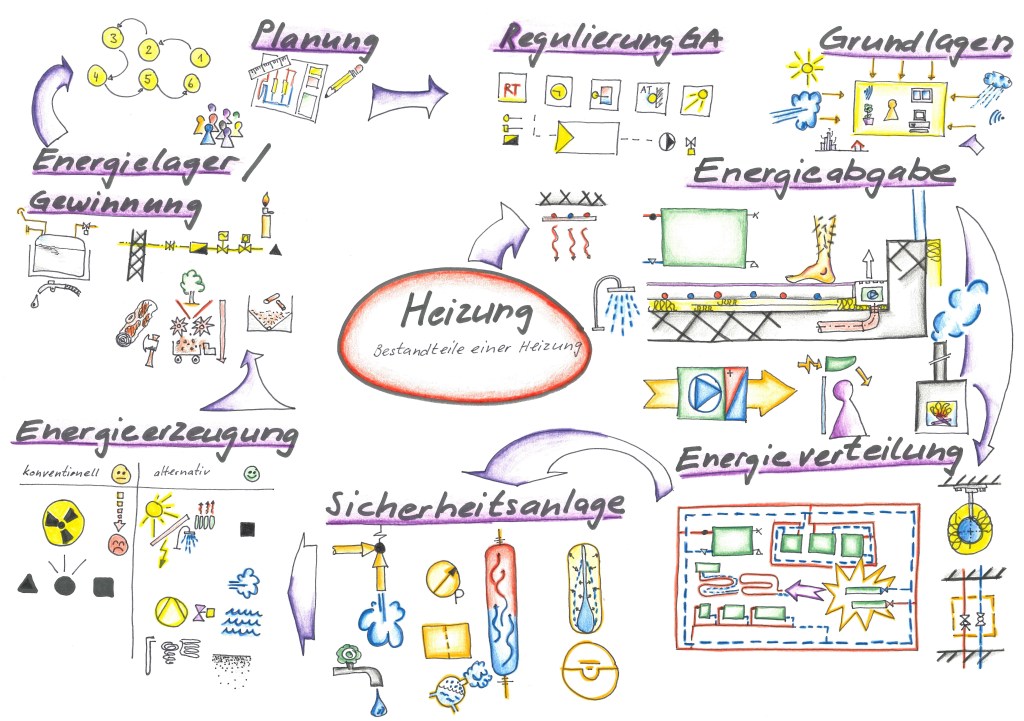 Planung
Regulierung GA
Grundlagen
3
2
1
4
5
6
RT
AT
Energielager /
Gewinnung
Energieabgabe
Heizung
Bestandteile einer Heizung
Energieerzeugung
konventionell
alternativ
Sicherheitsanlage
Energieverteilung